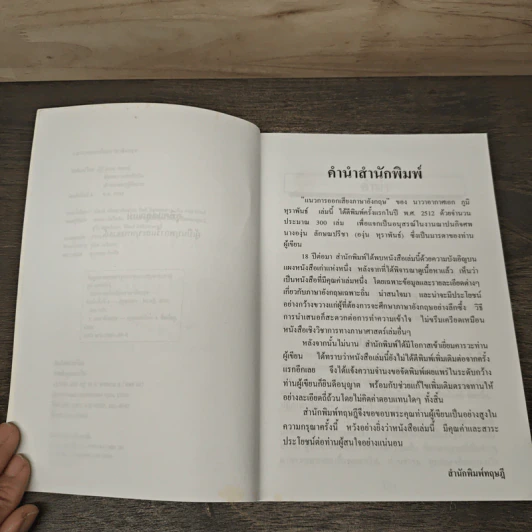 คำนำสำนักพิมพ์
"แนวการออกเสียงภาษาอังกฤษ" ของ นาวาอากาศเอก ภูมี
ทุราพันธ์ เล่มนี้ ได้ตีพิมพ์ครั้งแรกในปี พ.ศ. 2512 ด้วยจำนวน
ประมาณ 300 เล่ม เพื่อแจกเป็นอนุสรณ์ในงานฌาปนกิจศพ
นางอรุ่น ลักษณปรีชา (อรุ่น ทุราพันธ์) ซึ่งเป็นมารดาของท่าน
ผู้เขียน
18 ปีต่อมา สำนักพิมพ์ได้พบหนังสือเล่มนี้ด้วยความบังเอิญบน
แผงหนังสือเก่าแห่งหนึ่ง หลังจากที่ได้พิจารณาดูเนื้อหาแล้ว เห็นว่า
เป็นหนังสือที่มีคุณค่าเล่มหนึ่ง โดยเฉพาะข้อมูลและรายละเอียดต่างๆ
เกี่ยวกับภาษาอังกฤษเฉพาะถิ่น น่าสนใจมา และน่าจะมีประโยชน์
อย่างกว้างขวางแก่ผู้ที่ต้องการจะศึกษาภาษาอังกฤษอย่างลึกซึ้ง วิธี
การนำเสนอก็สะดวกต่อการทำความเข้าใจ ไม่ขรึมเครียดเหมือน
หนังสือเชิงวิชาการทางภาษาศาสตร์เล่มอื่นๆ
หลังจากนั้นไม่นาน สำนักพิมพ์ได้มีโอกาสเข้าเยี่ยมคารวะท่าน
ผู้เขียน ได้ทราบว่าหนังสือเล่มนี้ยังไม่ได้ตีพิมพ์เพิ่มเติมต่อจากครั้ง
แรกอีกเลย จึงได้แจ้งความจำนงขอจัดพิมพ์เผยแพร่ในระดับกว้าง
ท่านผู้เขียนก็ยินดีอนุญาต พร้อมกับช่วยแก้ไขเพิ่มเติมตรวจทานให้
อย่างละเอียดถี่ถ้วนโดยไม่คิดค่าตอบแทนใดๆ ทั้งสิ้น
สำนักพิมพ์ทฤษฎีจึงขอขอบพระคุณท่านผู้เขียนเป็นอย่างสูงใน
ความกรุณาครั้งนี้ หวังอย่างยิ่งว่าหนังสือเล่มนี้ มีคุณค่าและสาระ
ประโยชน์ต่อท่านผู้สนใจอย่างแน่นอน
สำนักพิมพ์ทฤษฎี